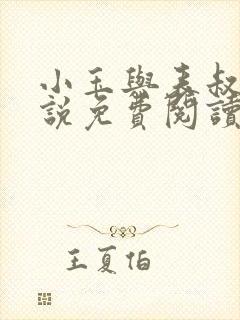 小玉與表叔
說免費閱讀
王夏伯